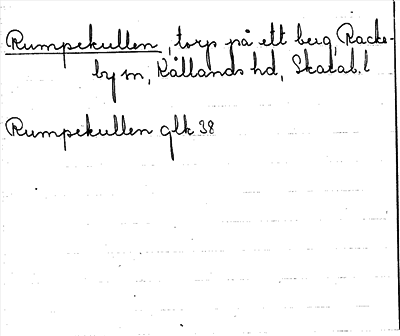 Rumpekullen, torp på ett berg, Racke-
by sn, Kållands hd, Skarab. l
Rumpekullen glk 38